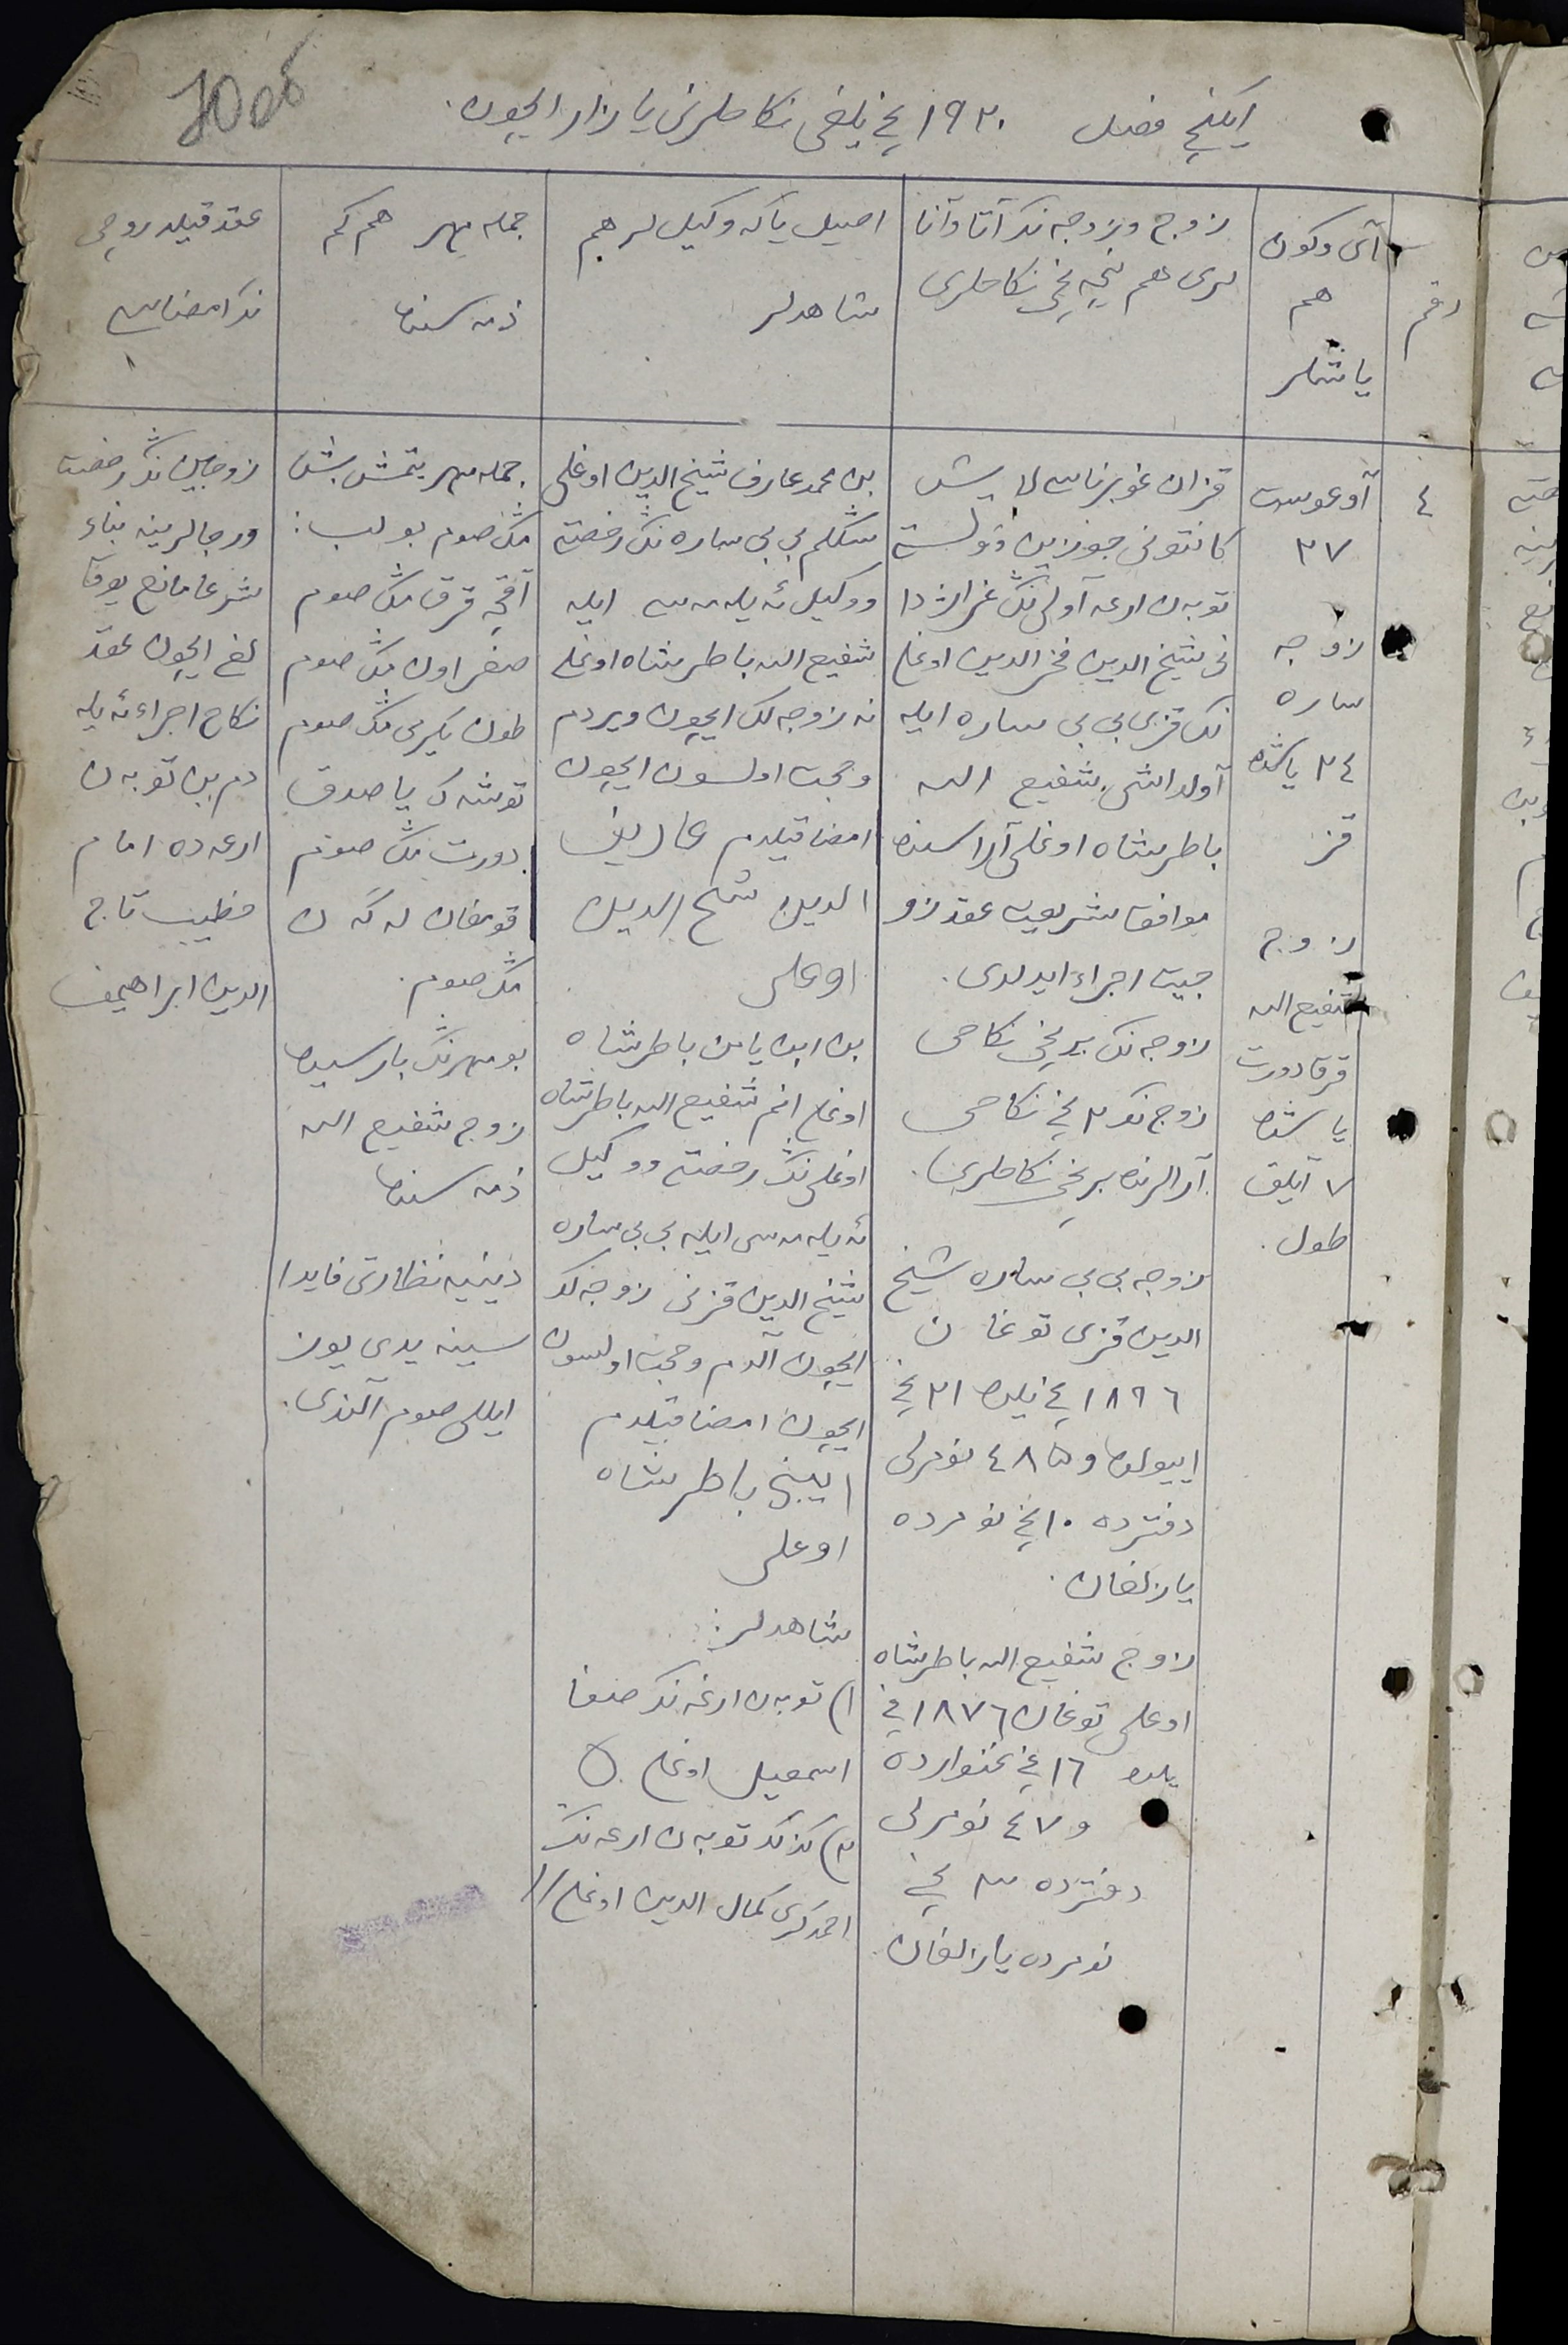 ایکنچی فصل ١٩٢٠ نچی یلغی نکاحلرنی یازار ایچون.
رقم
آی وکون
هم
یاشلر
زوج وزوجه نڭ آتا وآنا
لری هم نیچه نچی نکاحلری
اصیل یاکه وکیل لر هم
شاهدلر
جمله مهر هم کم
ذمه سنده
عقد قیلدروچی
نڭ امضاسی
٤
آوغوست
٢٧
زوجه
ساره
٢٤ یاشده
قز
زوج
شفیع الله
قرق دورت
یاشده
٧ آیلق
طول.
قزان غوبرناسی لایش
کانتونی
توبه ن ارعه آولی نڭ غراژدا
نی شیخ الدین فخر الدین اوغلی
نڭ قزی بی بی ساره ایله
آولداشی شفیع الله
باطرشاه اوغلی آراسنده
موافق شریعت عقد زو
جیت اجراء ایدلدی.
زوجه نڭ برنچی نکاحی
زوج نڭ ٢ نچی نکاحی
آرالرنده برنچی نکاحلری.
زوجه بی بی ساره شیخ
الدین قزی توغان
١٨٩٦ نچی یلده ٢١ نچی
اییولده و ٤٨٥ نومرلی
دفترده ١٠ نچی نومرده
یازلغان.
زوج شفیع الله باطرشاه
اوغلی توغان ١٨٧٦ نچی
یلده ١٦ نچی غنوارده
و ٤٧ نومرلی
دفترده ٣ نچی
نومرده یازلغان.
بن محمد عارف شیخ الدین اوغلی
سڭلم بی بی ساره نڭ رخصتی
ووکیل ئه یله مه سی ایله
شفیع الله باطرشاه اوغلی
نه زوجه لک ایچون ویردم
وحجت اولسون ایچون
امضا قیلدم عاریف
الدین شیخ الدین
اوغلی
بن ابن یامن باطرشاه
اوغلی انم شفیع الله باطرشاه
اوغلی نڭ رخصتی ووکیل
ئه یله مه سی ایله بی بی ساره
شیخ الدین قزنی زوجه لک
ایچون آلدم وحجت اولسون
ایچون امضا قیلدم
باطرشاه
اوغلی
شاهدلر:
١) توبه ن ارعه نڭ صفا
اسمعیل اوغلی
٢) توبه ن ارعه نڭ
احمدکری کمال الدین اوغلی
جمله مهر یتمش بش
مڭ صوم بولب:
آقچه قرق مڭ صوم
صغر اون مڭ صوم
طون یکرمی مڭ صوم
توشه ک یاصدق
دورت مڭ صوم
قومغان له گه ن
مڭ صوم.
بو مهرنڭ بارسیده
زوج شفیع الله
ذمه سنده
دینیه نظارتی فایدا
سینه یدی یوز
ایللی صوم آلندی.
زوجاین نڭ رخصت
ورجالرینه بناء
شرعا مانع یوق
لغی ایچون عقد
نکاح اجراء ئه یله
دم بن توبه ن
ارعه ده امام
خطیب تاج
الدین ابراهیمف